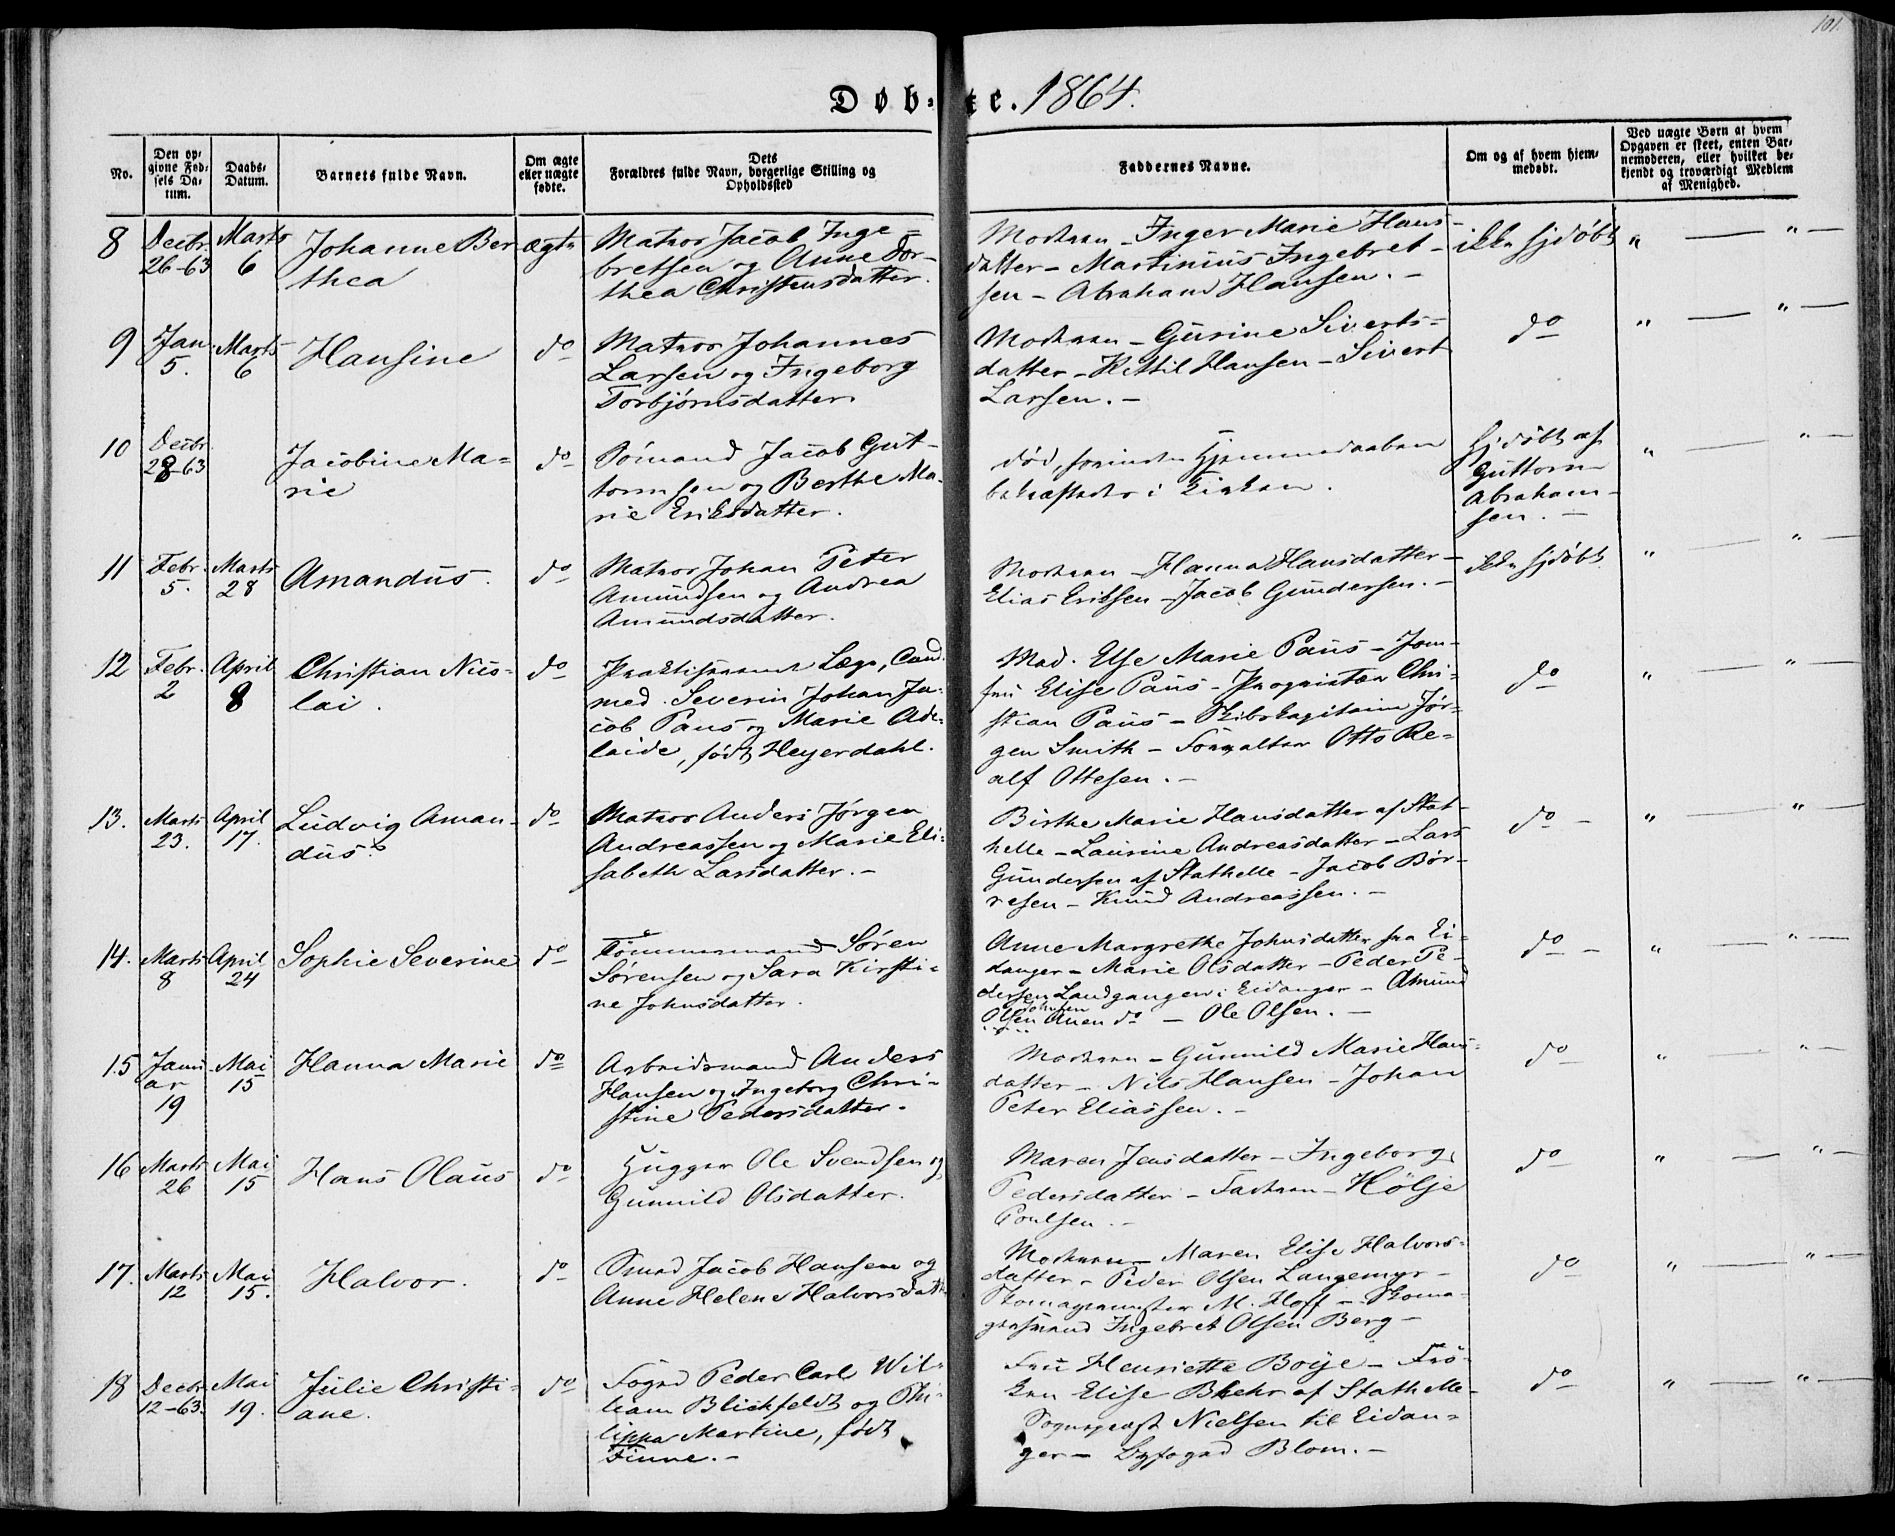 101.
Døb-te. 1864.
No.
Den op-
givne Fød-
sels Da-
tum.
Daabs-
Datum.
Barnets fulde Navn.
Om ægte
eller uægte
fødte.
Dets
Forældres fulde Navn, borgerlige Stilling og
Opholdssted
Faddernes Navne.
Om og af hvem hjem-
medøbt.
Ved uægte Børn af hvem
Opgaven er skeet, enten Bar-
nemoderen, eller hvilket be-
kjendt og troværdigt Medlem
af Menighed.
8
Decbr
26-63
Marts
6
Johanne Ber
thea
ægte
Matros Jacob Inge=
bretsen og Anne Dor-
thea Christensdatter.
Moderen - Inger Marie Hans-
datter - Martinius Ingebret-
sen - Abraham Hansen. -
ikke hjdøbt
" — " —
9
Jan.
5.
Marts
6
Hansine
do
Matros Johannes
Larsen og Ingeborg
Torbjørnsdatter.
Moderen - Gurine Siverts=
datter - Kittil Hansen - Sivert
Larsen. -
do
" — " —
10
Decbr
28-63
Jacobine Ma=
rie
do
Sømand Jacob Gut-
tormsen og Berthe Ma-
rie Eriksdatter.
død, forinden Hjemmedaaben
bekræftedes i Kirken.
Hjdøbt af
Guttorm
Abraham-
sen. -
" — " —
11
Febr.
5.
Marts
28
Amandus.
do
Matros Johan Peter
Amundsen og Andrea
Amundsdatter.
Moderen - Hanna Hansdatter -
Elias Eriksen - Jacob Gundersen. -
ikke hjdøbt
" — " —
12
Febr.
2
April
8
Christian Nico-
lai.
do
Praktiserende Læge, Cand.
med. Severin Johan Ja-
cob Paus og Marie Ade-
laide, født Heyerdahl.
Mad. Else Marie Paus - Jom-
fru Elise Paus - Proprietær Chri-
stian Paus - Skibskapitaine Jør-
gen Smith - Forvalter Otto Re=
alf Ottesen. -
do
" — " —
13.
Marts
23.
April
17.
Ludvig Aman-
dus.
do
Matros Anders Jørgen
Andreassen og Marie Eli=
sabeth Larsdatter. -
Birthe Marie Hansdatter af Stat-
helle - Laurine Andreasdatter - Lars
Gundersen af Stathelle - Jacob Bør-
resen - Knud Andreassen. -
do -
" — " —
14.
Marts
8
April
24
Sophie Severine
do
Tømmermand Søren
Sørensen og Sara Kirsti=
ne Johnsdatter.
Anne Margrethe Johnsdatter fra Ei-
danger - Marie Olsdatter - Peder Pe-
dersen Landgangen i Eidanger - Amund
Olsen Johnsen Auen do - Ole Olsen. -
do -
" — " —
15
Janu
ar
19
Mai
15
Hanna Marie
do
Arbeidsmand Anders
Hansen og Ingeborg Chri-
stine Pedersdatter.
Moderen - Gunnild Marie Hans=
datter - Nils Hansen - Johan
Peter Eliassen. -
do
" — " —
16
Marts
26
Mai
15
Hans Olaus
do
Hugger Ole Svendsen og
Gunnild Olsdatter.
Maren Jensdatter - Ingeborg
Pedersdatter - Faderen - Hölje
Poulsen. -
do
" — " —
17.
Marts
12
Mai
15.
Halvor.
do
Smed Jacob Hansen og
Anne Helene Halvorsdatt
Moderen - Maren Elise Halvors-
datter - Peder Olsen Langemyr -
Skomagermester M. Hoff - Skoma-
gersvend Ingebret Olsen Berg -
do
" — " —
18
Decbr
12-63.
Mai
19.
Julie Christi-
ane.
do
Foged Peder Carl Wil-
liam Blichfeldt og Phi-
lippa Martine, født
Finne. -
Fru Henriette Boije - Frø-
ken Elise Blehr af Stathelle -
Sogneprest Nielsen til Eidan-
ger - Byfoged Blom. -
do
" — " —